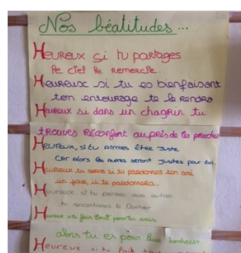 Nos béatitudes...
Heureux si tu partages
Le ciel te remercie.
Heureuse si tu es bienfaisant
ton entourage te le rendra
Heureux si dans un chagrin tu
trouves réconfort auprès de tes proches
Heureux, si tu aimes être juste
Car alors les autres seront justes pour toi.
Heureux tu seras si tu pardonnes ton ami
un jour, il te pardonnera.
Heureux si tu penses aux autres
tu
Heureux
alors tu es pour leur bonheur
Heureux si tu fais